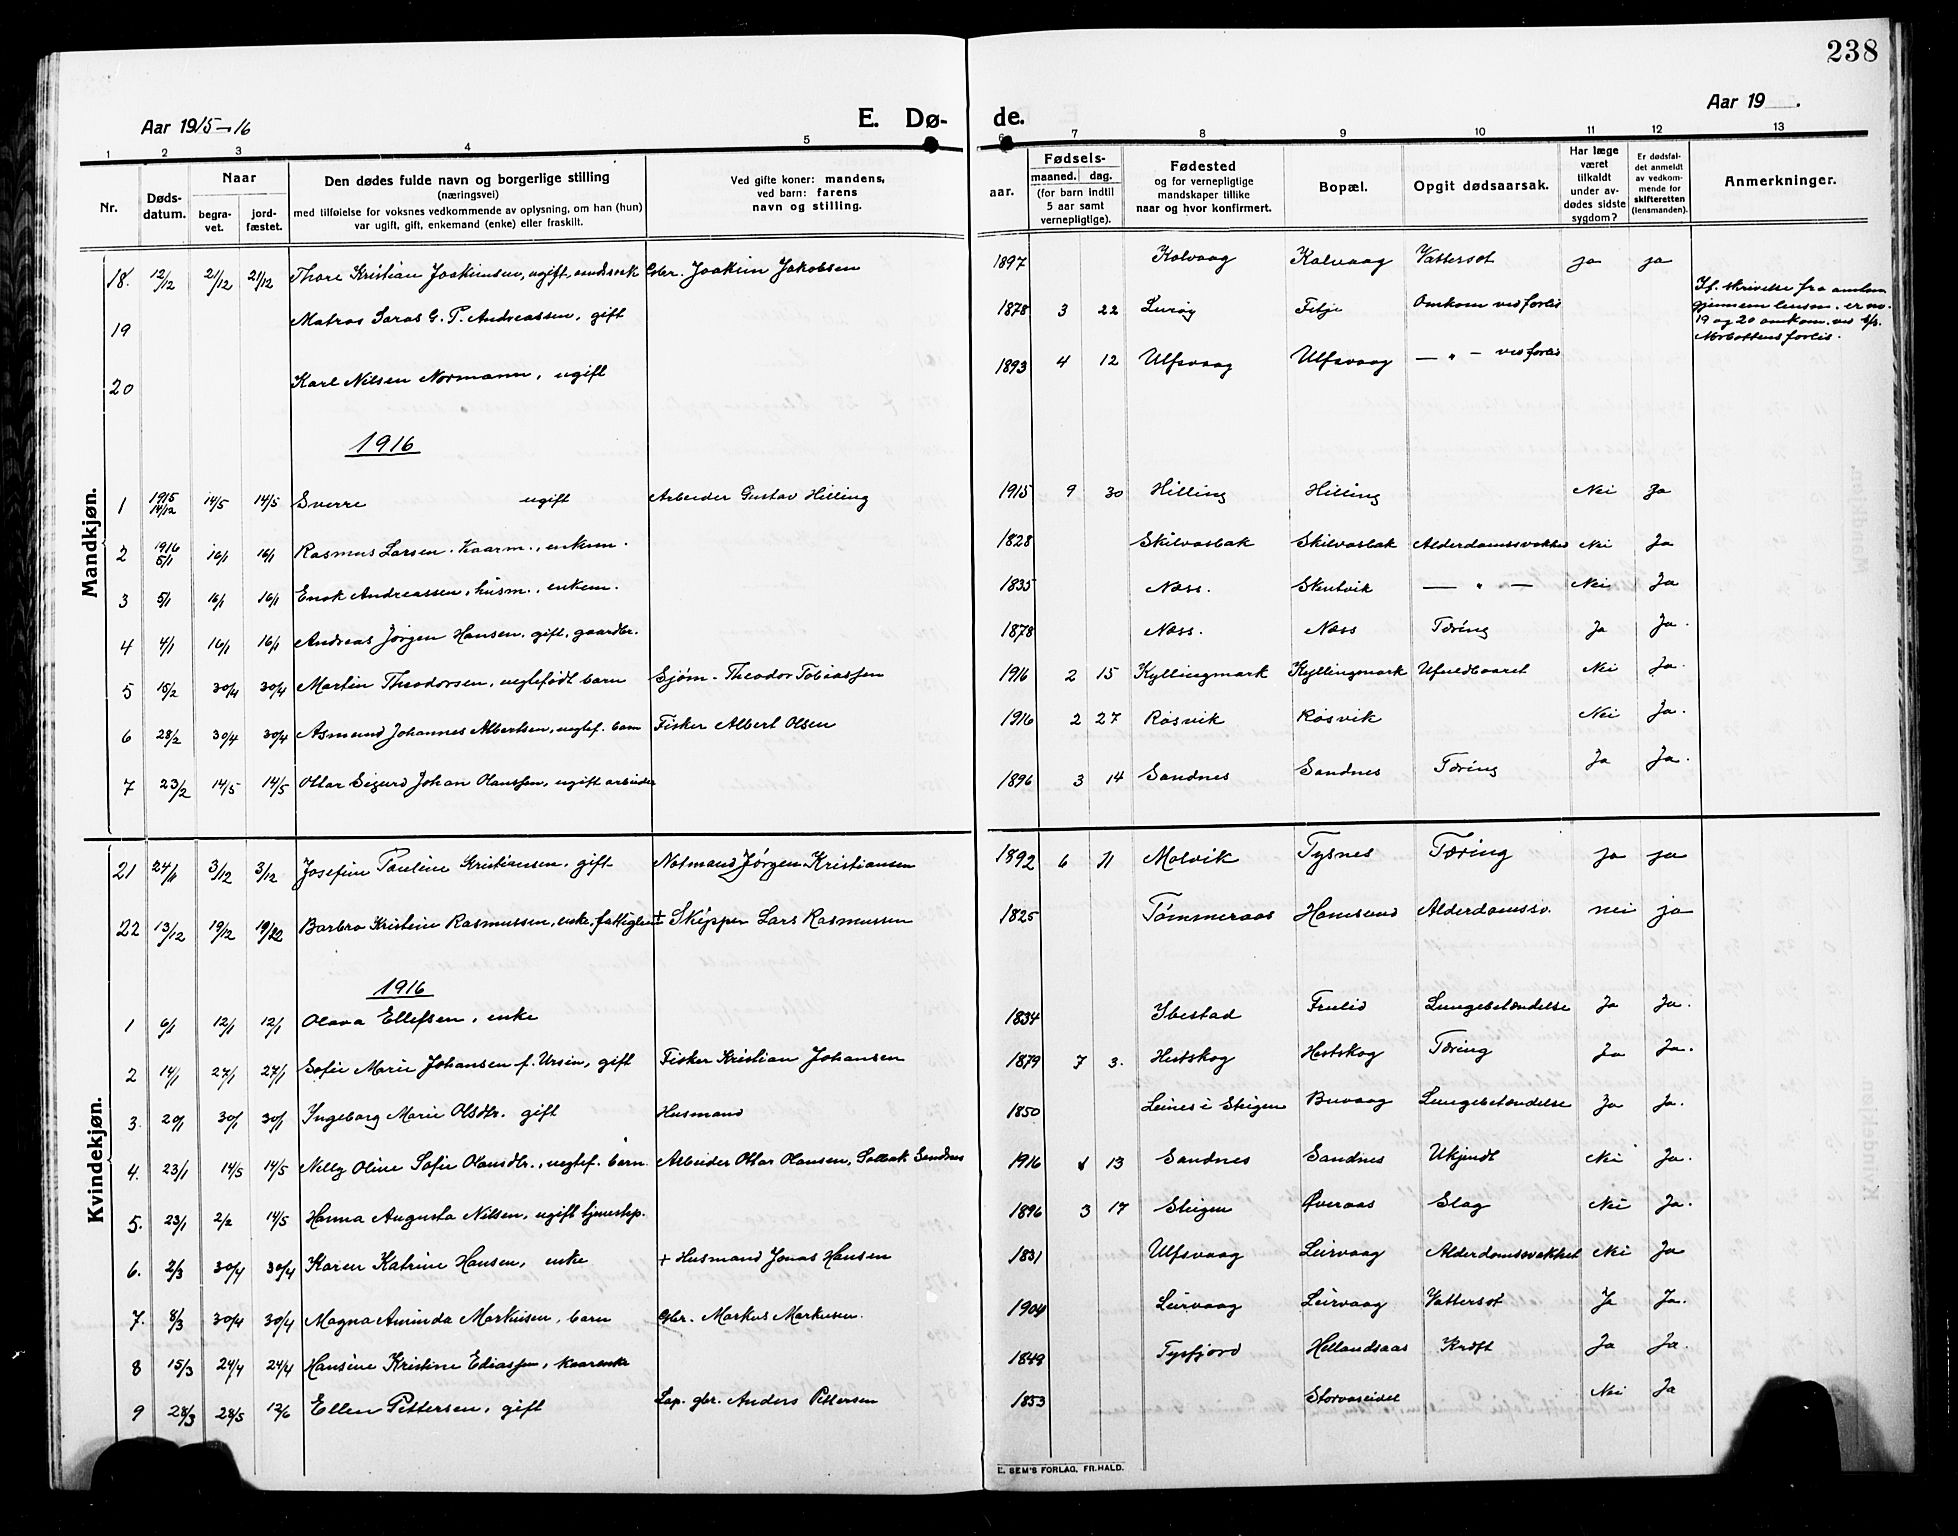 238
Aar 1915-16
E. Dø-
de.
Aar 19 .
1 2 3 4 5 6 7 8 9 10 11 12 13
Nr.
Døds-
datum.
Naar
begra-
vet.
jord-
fæstet.
Den dødes fulde navn og borgerlige stilling
(næringsvei)
med tilføielse for voksnes vedkommende av oplysning, om han (hun)
var ugift, gift, enkemand (enke) eller fraskilt.
Ved gifte koner: mandens,
ved barn: farens
navn og stilling.
aar.
Fødsels-
maaned. dag.
(for barn indtil
5 aar samt
vernepligtige).
Fødested
og for vernepligtige
mandskaper tillike
naar og hvor konfirmert.
Bopæl.
Opgit dødsaarsak.
Har læge
været
tilkaldt
under av-
dødes sidste
sygdom?
Er dødsfal-
det anmeldt
av vedkom-
mende for
skifteretten
(lensmanden).
Anmerkninger.
Mandkjøn.
18. 12/12 21/12 21/12 Thore Kristian Joakimsen, ugift, Gbr. Joakim Jakobsen 1897 Kalvaag Kalvaag Vattersot ja ja
19 Matros Saras G. P. Andreassen, gift 1878 3 22 Lurøy Fitje Omkom ved forlis
If. skrivelse fra
gjennem lensm. er no.
19 og 20 omkom. ved s/s.
Norbottens forlis.
20 Karl Nilsen Normann, ugift 1893 4 12 Ulfsvaag Ulfsvaag — " — ved forlis
1916
1 1915 14/12 14/5 14/5 Sverre ugift Arbeider Gustav Hilling 1915 9 30 Hilling Hilling Nei Ja
2 1916 5/1 16/1 16/1 Rasmus Larsen. Kaarm., enkem. 1828 Skilvasbak Skilvasbak Alderdomssvakhed Nei Ja
3 5/1 16/1 16/1 Enok Andreassen, husm., enkem. 1835 Næss. Skutvik — " — Nei Ja
4 4/1 16/1 16/1 Andreas Jørgen Hansen, gift, gaardbr. 1878 Næss. Næss Tæring Ja Ja.
5 15/2 30/4 30/4 Martin Theodorsen, uegtefødt barn Sjøm. Theodor Tobiassen 1916 2 15 Kyllingmark Kyllingmark Ufuldbaaret Nei Ja.
6 28/2 30/4 30/4 Asmund Johannes Albertsen, uegtef. barn Fisker Albert Olsen 1916 2 27 Røsvik Røsvik Nei Ja.
7 23/2 14/5 14/5 Ottar Sigurd Johan Olaussen, ugift arbeider 1896 3 14 Sandnes Sandnes Tæring Ja Ja.
Kvindekjøn.
21 24/11 3/12 3/12 Josefine Pauline Kristiansen, gift Notmand Jørgen Kristiansen 1892 6 11 Molvik Tysnes Tæring ja ja
22 13/12 19/12 19/12 Barbro Kristine Rasmussen, enke, fattiglem + Skipper Lars Rasmussen 1825 Tømmeraas Hamsund Alderdomssv. nei ja
1916
1 6/1 12/1 12/1 Olava Ellefsen, enke 1834 Ibestad Trulid Lungebetændelse Ja Ja.
2 14/1 27/1 27/1 Sofie Marie Johansen f. Ursin, gift Fisker Kristian Johansen 1879 7 3. Hestskog Hestskog Tæring Ja Ja.
3. 20/1 30/1 30/1 Ingeborg Marie Olsdtr. gift Husmand 1850 Leines i Steigen Buvaag Lungebetændelse Ja Ja.
4. 23/1 14/5 14/5 Nelly Oline Sofie Olausdtr., uegtef. barn. Arbeider Ottar Olausen, Solbak Sandnes 1916 1 13 Sandnes Sandnes Ukjendt Nei Ja.
5. 23/1 2/2 14/5 Hanna Augusta Nilsen, ugift tjenestep. 1896 3 17 Steigen Øveraas Slag Nei Ja.
6. 2/3 30/4 30/4 Karen Katrine Hansen, enke + Husmand Jonas Hansen 1831 Ulfsvaag Leirvaag Alderdomssvakhet Nei Ja
7. 8/3 30/4 30/4 Magna Aminda Markusen, barn Gbr. Markus Markusen. 1904 Leirvaag Leirvaag Vattersot Ja Ja.
8 15/3 24/4 24/4 Hansine Kristine Ediassen, kaarenke 1849 Tysfjord Hellandsaas Kræft Ja Ja.
9 28/3 28/5 12/6 Ellen Pettersen, gift Lap. gbr. Anders Pettersen 1853 Storvaseidet Nei Ja
E. SEM'S FORLAG, FR.HALD.